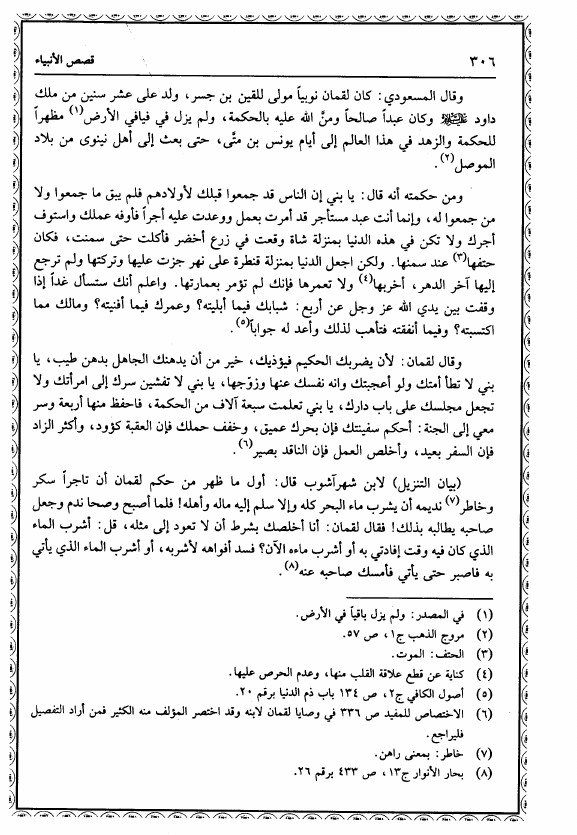 ٣٠٦ قصص الأنبياء
وقال المسعودي: كان لقمان نوبياً مولى للقين بن جسر، ولد على عشر سنين من ملك
داود عليه السلام وكان عبداً صالحاً ومنَّ الله عليه بالحكمة، ولم يزل في فيافي الأرض(١) مظهراً
للحكمة والزهد في هذا العالم إلى أيام يونس بن متَّى، حتى بعث إلى أهل نينوى من بلاد
الموصل(٢).
ومن حكمته أنه قال: يا بني إن الناس قد جمعوا قبلك لأولادهم فلم يبق ما جمعوا ولا
من جمعوا له، وإنما أنت عبد مستأجر قد أمرت بعمل ووعدت عليه أجراً فأوفه عملك واستوف
أجرك ولا تكن في هذه الدنيا بمنزلة شاة وقعت في زرع أخضر فأكلت حتى سمنت، فكان
حتفها(٣) عند سمنها. ولكن اجعل الدنيا بمنزلة قنطرة على نهر جزت عليها وتركتها ولم ترجع
إليها آخر الدهر، أخربها(٤) ولا تعمرها فإنك لم تؤمر بعمارتها. واعلم أنك ستسأل غداً إذا
وقفت بين يدي الله عز وجل عن أربع: شبابك فيما أبليته؟ وعمرك فيما أفنيته؟ ومالك مما
اكتسبته؟ وفيما أنفقته فتأهب لذلك وأعد له جواباً(٥).
وقال لقمان: لأن يضربك الحكيم فيؤذيك، خير من أن يدهنك الجاهل بدهن طيب، يا
بني لا تطأ أمتك ولو أعجبتك وانه نفسك عنها وزوّجها، يا بني لا تفشين سرك إلى امرأتك ولا
تجعل مجلسك على باب دارك، يا بني تعلمت سبعة آلاف من الحكمة، فاحفظ منها أربعة وسر
معي إلى الجنة: أحكم سفينتك فإن بحرك عميق، وخفف حملك فإن العقبة كؤود، وأكثر الزاد
فإن السفر بعيد، وأخلص العمل فإن الناقد بصير(٦).
(بيان التنزيل) لابن شهرآشوب قال: أول ما ظهر من حكم لقمان أن تاجراً سكر
وخاطر(٧) نديمه أن يشرب ماء البحر كله وإلا سلم إليه ماله وأهله! فلما أصبح وصحا ندم وجعل
صاحبه يطالبه بذلك! فقال لقمان: أنا أخلصك بشرط أن لا تعود إلى مثله، قل: أشرب الماء
الذي كان فيه وقت إفادتي به أو أشرب ماءه الآن؟ فسد أفواهه لأشربه، أو أشرب الماء الذي يأتي
به فاصبر حتى يأتي فأمسك صاحبه عنه(٨).
(١) في المصدر: ولم يزل باقياً في الأرض.
(٢) مروج الذهب ج١، ص ٥٧.
(٣) الحتف: الموت.
(٤) كناية عن قطع علاقة القلب منها، وعدم الحرص عليها.
(٥) أصول الكافي ج٢، ص ١٣٤ باب ذم الدنيا برقم ٢٠.
(٦) الاختصاص للمفيد ص ٣٣٦ في وصايا لقمان لابنه وقد اختصر المؤلف منه الكثير فمن أراد التفصيل
فليراجع.
(٧) خاطر: بمعنى راهن.
(٨) بحار الأنوار ج١٣، ص ٤٣٣ برقم ٢٦.